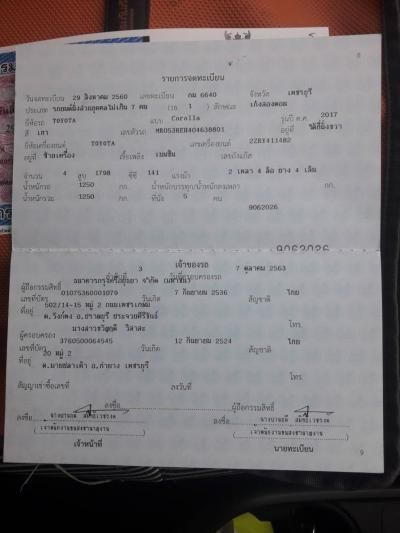 8
รายการจดทะเบียน
วันจดทะเบียน 29 สิงหาคม 2560 เลขทะเบียน กม 6640 จังหวัด เพชรบุรี
ประเภท รถยนต์นั่งส่วนบุคคลไม่เกิน 7 คน (รย. 1 ) ลักษณะ เก๋งสองตอน
ยี่ห้อรถ TOYOTA แบบ Corolla รุ่นปี ค.ศ. 2017
สี เทา เลขตัวรถ อยู่ที่ ใต้ที่นั่งขวา
ยี่ห้อเครื่องยนต์ TOYOTA เลขเครื่องยนต์ 2ZRY411482
อยู่ที่ ซ้ายเครื่อง เชื้อเพลิง เบนซิน เลขถังแก๊ส
จำนวน 4 สูบ 1798 ซีซี 141 แรงม้า 2 เพลา 4 ล้อ ยาง 4 เส้น
น้ำหนักรถ 1250 กก. น้ำหนักบรรทุก/น้ำหนักลงเพลา กก.
น้ำหนักรวม 1250 กก. ที่นั่ง 5 คน
9062026
9062026
เจ้าของรถ
3 วันที่ครอบครองรถ 7 ตุลาคม 2563
ผู้ถือกรรมสิทธิ์ ธนาคารกรุงศรีอยุธยา จำกัด (มหาชน)
เลขที่บัตร 0107536000107 วันเกิด 7 กันยายน 2536 สัญชาติ ไทย
ที่อยู่ 502/14-15 หมู่ 2
โทร.
ผู้ครอบครอง นางสาว
เลขที่บัตร 3760500064545 วันเกิด 12 กันยายน 2524 สัญชาติ ไทย
ที่อยู่ 20 หมู่ 2
อ.ท่ายาง เพชรบุรี
โทร.
สัญญาเช่าซื้อเลขที่ ลงวันที่
ลงชื่อ ผู้ถือกรรมสิทธิ์
ลงชื่อ ลงชื่อ
(เจ้าพนักงานขนส่งชำนาญงาน) (เจ้าพนักงานขนส่งชำนาญงาน)
เจ้าหน้าที่ นายทะเบียน
9